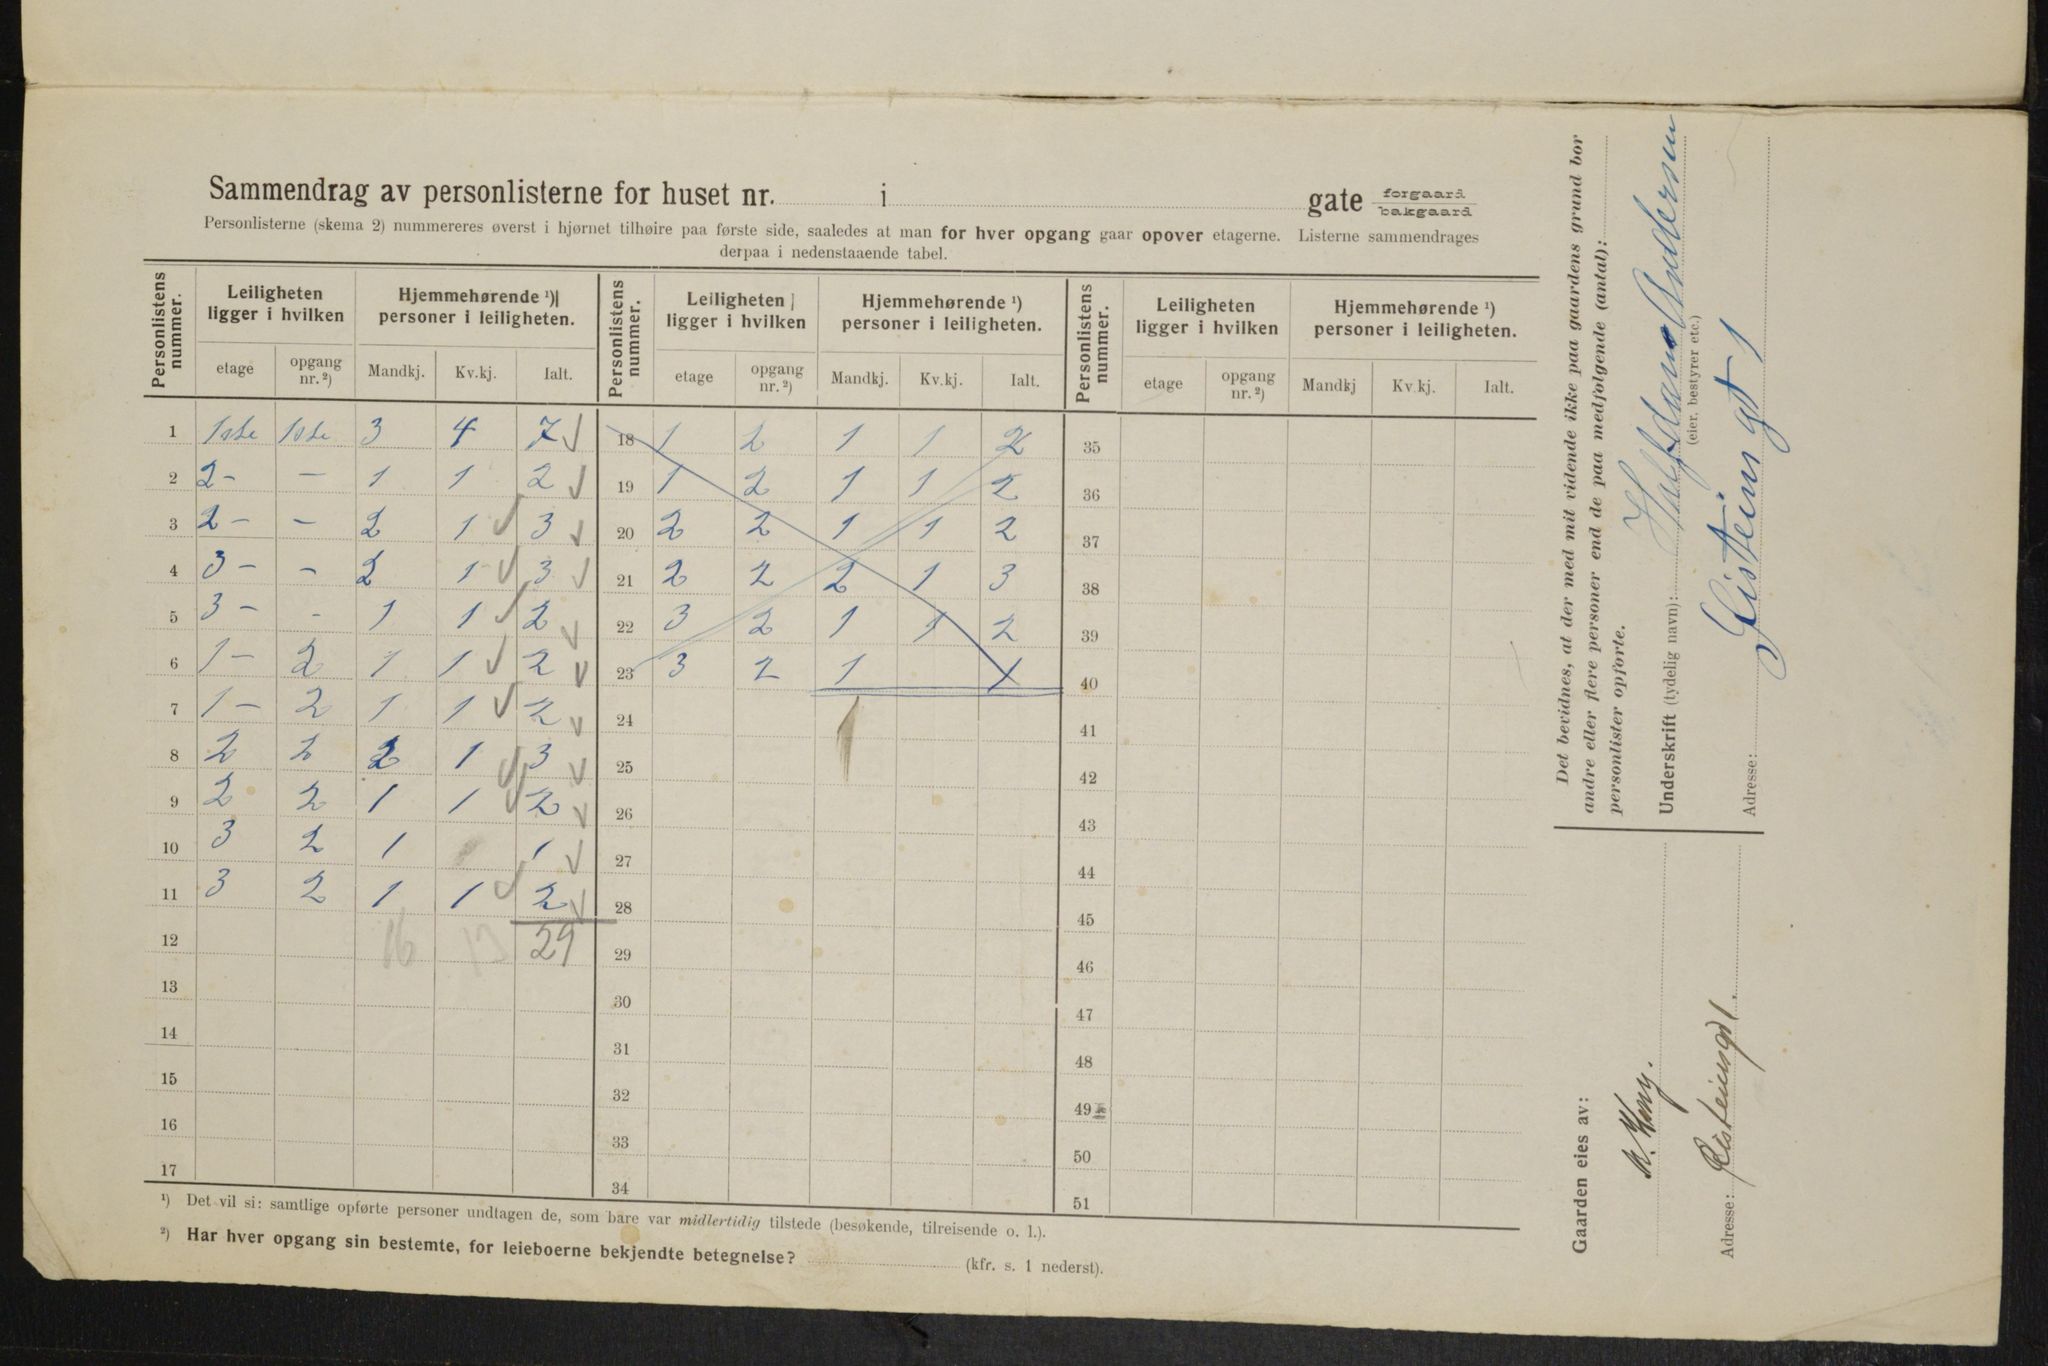 Sammendrag av personlisterne for huset nr. i gate forgaard bakgaard
Personlisterne (skema 2) nummereres øverst i hjørnet tilhøire paa første side, saaledes at man for hver opgang gaar opover etagerne. Listerne sammendrages
derpaa i nedenstaaende tabel.
Personlistens nummer. Leiligheten ligger i hvilken Hjemmehørende ¹) personer i leiligheten. Personlistens nummer. Leiligheten ligger i hvilken Hjemmehørende ¹) personer i leiligheten. Personlistens nummer. Leiligheten ligger i hvilken Hjemmehørende ¹) personer i leiligheten.
etage opgang nr. ²) Mandkj. Kv.kj. Ialt. etage opgang nr. ²) Mandkj. Kv.kj. Ialt. etage opgang nr. ²) Mandkj Kv.kj. Ialt.
1 1ste 1ste 3 4 7 18 1 2 1 1 2 35
2 2 - - 1 1 2 19 1 2 1 1 2 36
3 2 - - 2 1 3 20 2 2 1 1 2 37
4 3 - - 2 1 3 21 2 2 2 1 3 38
5 3 - - 1 1 2 22 3 2 1 1 2 39
6 1 - 2 1 1 2 23 3 2 1 1 40
7 1 - 2 1 1 2 24 41
8 2 2 2 1 3 25 42
9 2 2 1 1 2 26 43
10 3 2 1 1 27 44
11 3 2 1 1 2 28 45
12 16 13 29 29 46
13 30 47
14 31 48
15 32 49
16 33 50
17 34 51
¹) Det vil si: samtlige opførte personer undtagen de, som bare var midlertidig tilstede (besøkende, tilreisende o. l.).
²) Har hver opgang sin bestemte, for leieboerne bekjendte betegnelse? (kfr. s. 1 nederst).
Det bevidnes, at der med mit vidende ikke paa gaardens grund bor
andre eller flere personer end de paa medfølgende (antal):
personlister opførte.
Underskrift (tydelig navn): Halfdan Andersen
(eier, bestyrer etc.)
Adresse: Eistein gt 1
Gaarden eies av:
Adresse: Eisteinsgt 1.